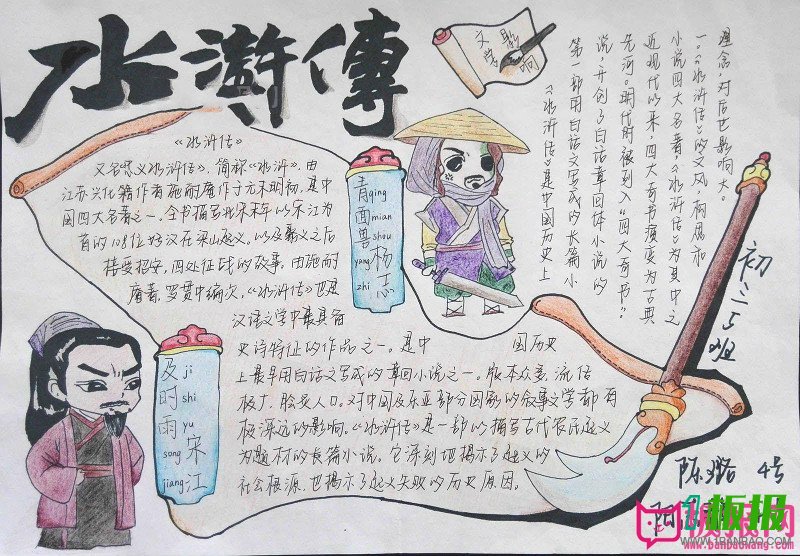 水滸傳
《水浒传》
又名《忠义水浒传》，简称《水浒》，由
江苏兴化籍作者施耐庵作于元末明初，是中
国四大名著之一。全书描写北宋末年以宋江为
首的108位好汉在梁山起义，以及聚义之后
接受招安，四处征战的故事。由施耐
庵著，罗贯中编次，《水浒传》也是
汉语文学中最具备
史诗特征的作品之一。是中 国历史
上最早用白话文写成的章回小说之一。版本众多，流传
极广，脍炙人口。对中国及东亚部分国家的叙事文学都有
极深远的影响。《水浒传》是一部以描写古代农民起义
为题材的长篇小说。它深刻地揭示了起义的
社会根源，也揭示了起义失败的历史原因。
青qing
面mian
兽shou
yang杨
zhi志
及ji
时shi
雨yu
song宋
jiang江
文学影响
《水浒传》是中国历史上
第一部用白话文写成的长篇小
说，开创了白话章回体小说的
先河。明代时被列入“四大奇书”，
近现代以来，四大奇书演变为古典
小说四大名著，《水浒传》为其中之
一。《水浒传》的文风、构思和
理念，对后世影响大。
初二5班
4号
1板报
WWW.1BANBAO.COM
www.banbaowang.com